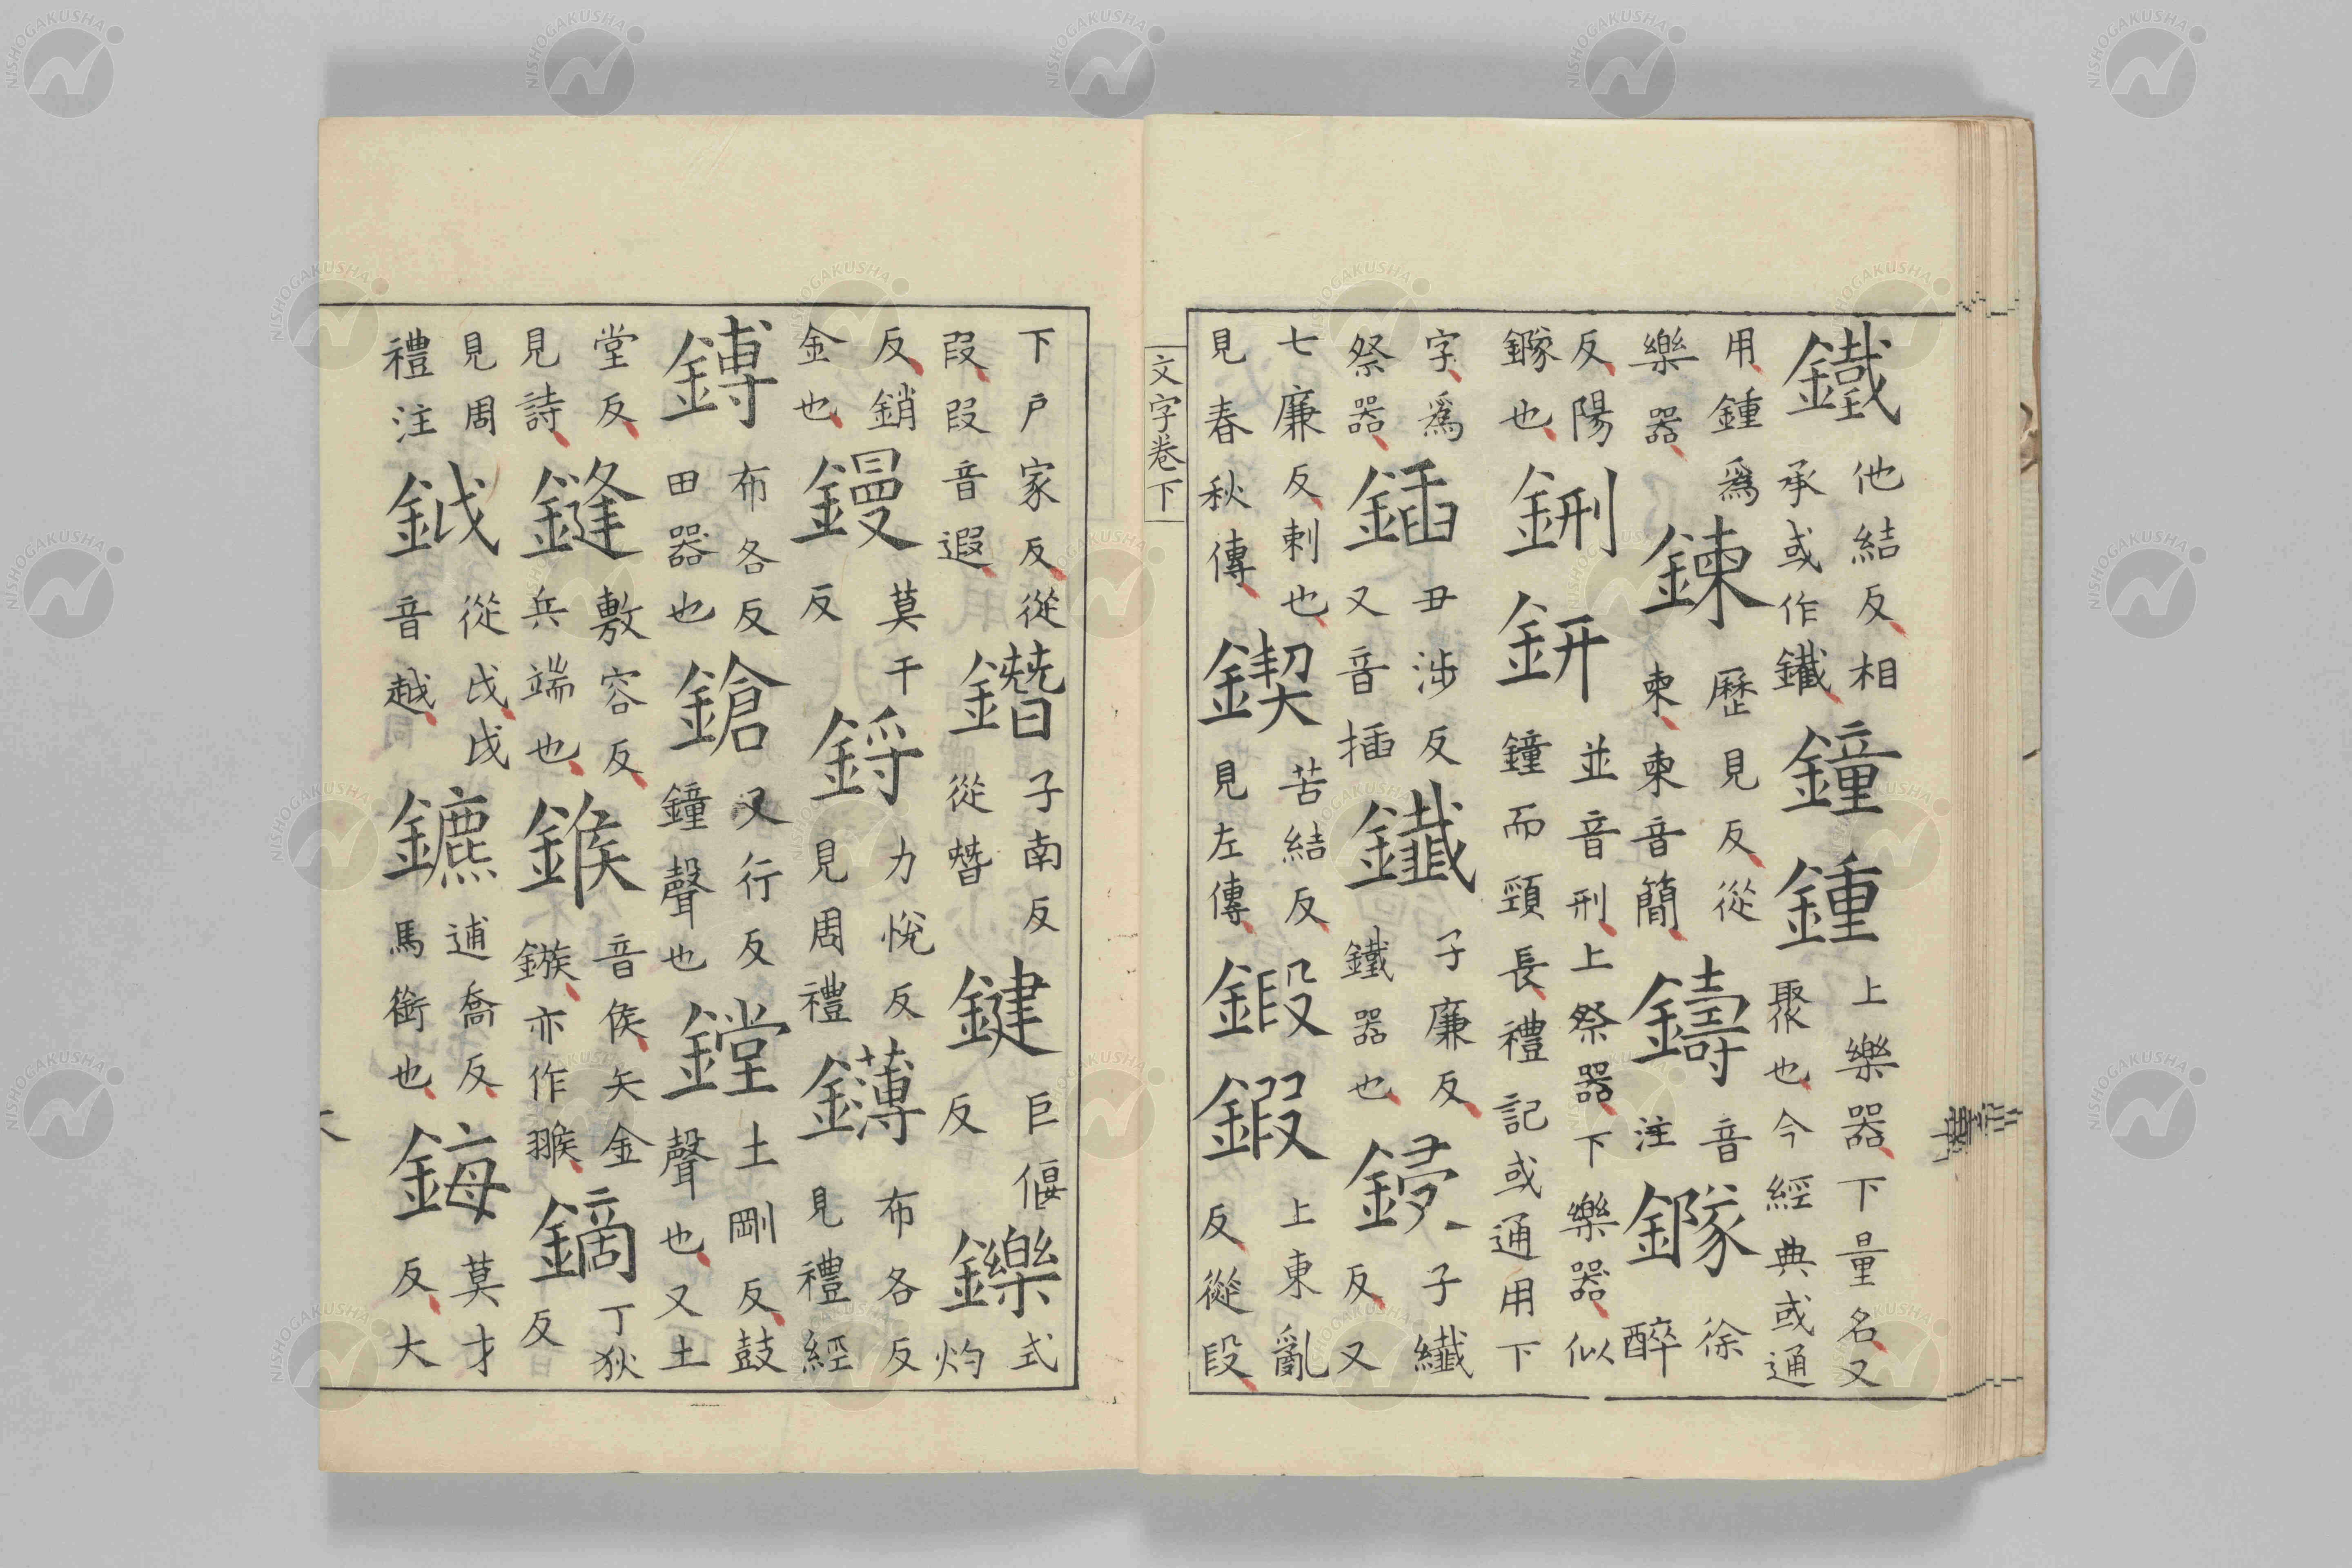 鐵他結反相承或作鐵鐘鍾上樂器下量名又聚也今經典或通
用鍾爲樂器鍊歷見反從柬柬音簡鑄音注鐩徐醉
反陽鐩也鉶鈃並音刑上祭器下樂器似鐘而頸長禮記或通用下
字爲祭器鍤丑涉反又音插鑯子廉反鐵器也鋟子纖反又
七廉反剌也見春秋傳鍥苦結反見左傳鍛鍜上東亂反從段
文字卷下
下戶家反從叚叚音遐鐕子南反從朁鍵巨偃反鑠式灼
反銷金也鏝莫干反鋝力悅反見周禮鑮布各反見禮經
鎛布各反田器也鎗又行反鐘聲也鏜土剛反鼓聲也又土
堂反見詩鏠敷容反兵端也鍭音侯矢金鏃亦作翭鏑丁狄反
見周禮注鉞從戉戉音越鑣逋喬反馬銜也鋂莫才反大
NISHOGAKUSHA